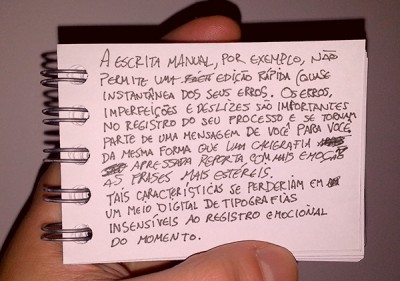 A ESCRITA MANUAL, POR EXEMPLO, NÃO
PERMITE UMA EDIÇÃO RÁPIDA (QUASE
INSTANTÂNEA DOS SEUS ERROS. OS ERROS,
IMPERFEIÇÕES E DESLIZES SÃO IMPORTANTES
NO REGISTRO DO SEU PROCESSO E SE TORNAM
PARTE DE UMA MENSAGEM DE VOCÊ PARA VOCÊ.
DA MESMA FORMA QUE UMA CALIGRAFIA
APRESSADA REPORTA COM MAIS EMOÇÃO
AS FRASES MAIS ESTÉREIS.
TAIS CARACTERÍSTICAS SE PERDERIAM EM
UM MEIO DIGITAL DE TIPOGRAFIAS
INSENSÍVEIS AO REGISTRO EMOCIONAL
DO MOMENTO.